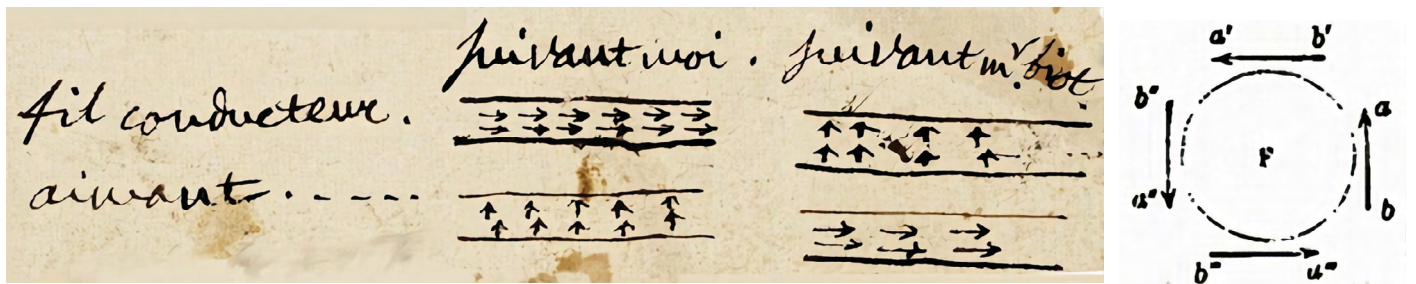 suivant moi . suivant mr. biot.
fil conducteur.
aimant . - - - -
a' b'
b" a
F
a" b
b''' a'''